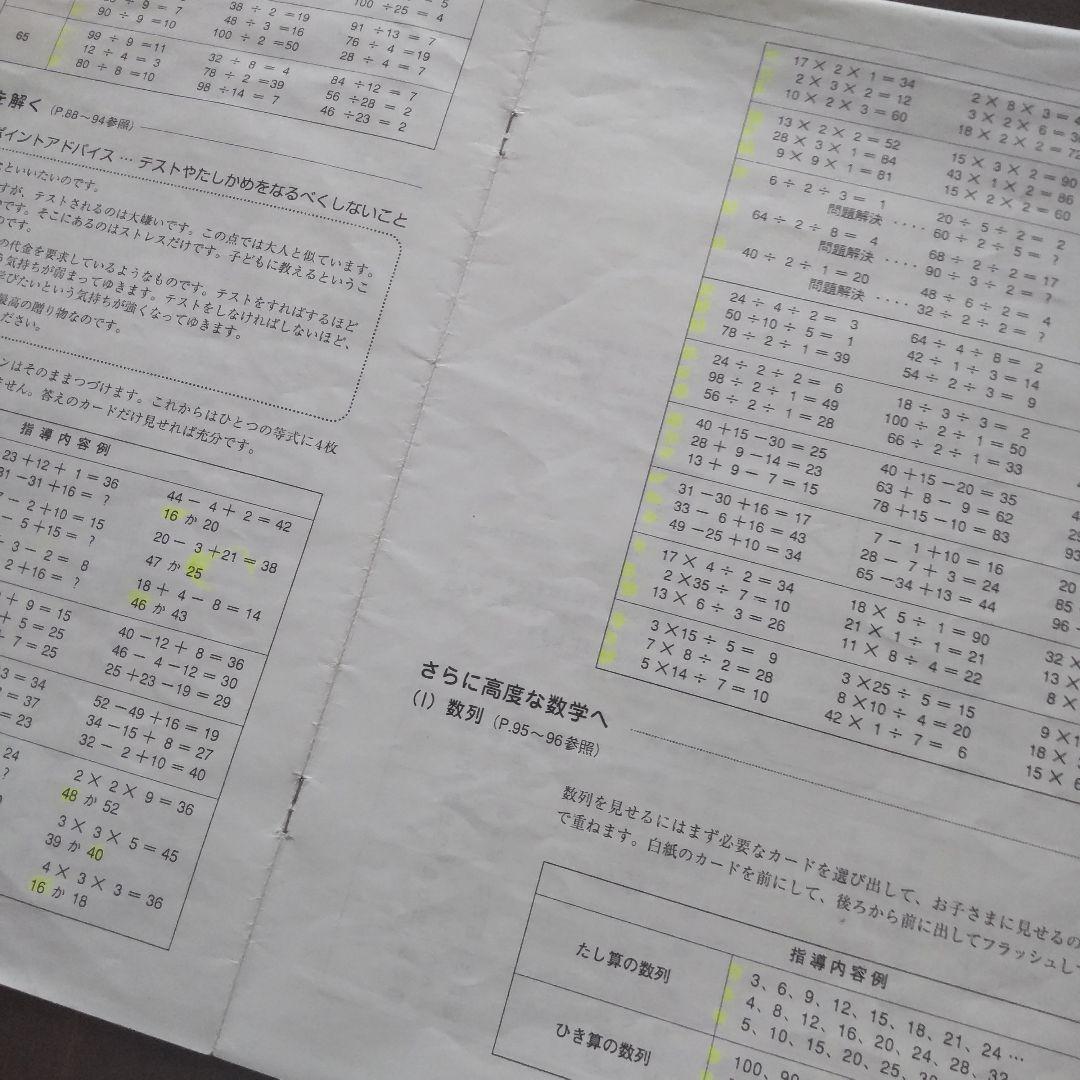 ÷ 9 = 7
90 ÷ 9 =10
38 ÷ 2 =19
48 ÷ 3 =16
100 ÷ 2 =50
100 ÷25 = 4
91 ÷13 = 7
76 ÷ 4 =19
28 ÷ 4 = 7
65
99 ÷ 9 =11
12 ÷ 4 = 3
80 ÷ 8 =10
32 ÷ 8 = 4
78 ÷ 2 =39
98 ÷14 = 7
84 ÷12 = 7
56 ÷28 = 2
46 ÷23 = 2
を解く (P.88〜94参照)
ポイントアドバイス … テストやたしかめをなるべくしないこと
といいたいのです。
すが、テストされるのは大嫌いです。この点では大人と似ています。
です。そこにあるのはストレスだけです。子どもに教えるというこ
のです。
の代金を要求しているようなものです。テストをすればするほど
う気持ちが弱まってゆきます。テストをしなければしないほど、
学びたいという気持ちが強くなってゆきます。
最高の贈り物なのです。
ださい。
ンはそのままつづけます。これからはひとつの等式に4枚
ません。答えのカードだけ見せれば充分です。
指導内容例
23 +12 + 1 = 36
31 −31 +16 = ?
44 − 4 + 2 = 42
16 か 20
− 2 +10 = 15
− 5 +15 = ?
20 − 3 +21 = 38
47 か 25
÷ 3 − 2 = 8
2 +16 = ?
18 + 4 − 8 = 14
46 か 43
+ 9 = 15
+ 5 = 25
+ 7 = 25
40 −12 + 8 = 36
46 − 4 −12 = 30
25 +23 −19 = 29
3 = 34
= 37
= 23
52 −49 +16 = 19
34 −15 + 8 = 27
32 − 2 +10 = 40
24
?
2 × 2 × 9 = 36
48 か 52
3 × 3 × 5 = 45
39 か 40
4 × 3 × 3 = 36
16 か 18
17 × 2 × 1 = 34
2 × 3 × 2 = 12
10 × 2 × 3 = 60
2 × 8 × 3 = 4
3 × 2 × 6 = 3
18 × 2 × 2 = 72
13 × 2 × 2 = 52
28 × 3 × 1 = 84
9 × 9 × 1 = 81
15 × 3 × 2 = 90
43 × 1 × 2 = 86
15 × 2 × 2 = 60
6 ÷ 2 ÷ 3 = 1
20 ÷ 5 ÷ 2 = 2
問題解決 ････ 60 ÷ 2 ÷ 5 = ?
64 ÷ 2 ÷ 8 = 4
68 ÷ 2 ÷ 2 = 17
問題解決 ････ 90 ÷ 3 ÷ 2 = ?
40 ÷ 2 ÷ 1 = 20
48 ÷ 6 ÷ 2 = 4
問題解決 ････ 32 ÷ 2 ÷ 2 = ?
24 ÷ 4 ÷ 2 = 3
50 ÷10 ÷ 5 = 1
78 ÷ 2 ÷ 1 = 39
64 ÷ 4 ÷ 8 = 2
42 ÷ 1 ÷ 3 = 14
54 ÷ 2 ÷ 3 = 9
24 ÷ 2 ÷ 2 = 6
98 ÷ 2 ÷ 1 = 49
56 ÷ 2 ÷ 1 = 28
18 ÷ 3 ÷ 3 = 2
100 ÷ 2 ÷ 1 = 50
66 ÷ 2 ÷ 1 = 33
40 +15 −30 = 25
28 + 9 −14 = 23
13 + 9 − 7 = 15
40 +15 −20 = 35
63 + 8 − 9 = 62
78 +15 −10 = 83
93
31 −30 +16 = 17
33 − 6 +16 = 43
49 −25 +10 = 34
7 − 1 +10 = 16
28 − 7 + 3 = 24
65 −34 +13 = 44
20
85
96 −
17 × 4 ÷ 2 = 34
2 ×35 ÷ 7 = 10
13 × 6 ÷ 3 = 26
18 × 5 ÷ 1 = 90
21 × 1 ÷ 1 = 21
11 × 8 ÷ 4 = 22
32 ×
13 ×
8 ×
3 ×15 ÷ 5 = 9
7 × 8 ÷ 2 = 28
5 ×14 ÷ 7 = 10
3 ×25 ÷ 5 = 15
8 ×10 ÷ 4 = 20
42 × 1 ÷ 7 = 6
9 ×1
18 ×
15 × 6
さらに高度な数学へ
(I) 数列 (P.95〜96参照)
数列を見せるにはまず必要なカードを選び出して、お子さまに見せるの
で重ねます。白紙のカードを前にして、後ろから前に出してフラッシュし
指導内容例
たし算の数列
3、6、9、12、15、18、21、24 …
4、8、12、16、20、24、28、32
5、10、15、20、25、30
ひき算の数列
100、90